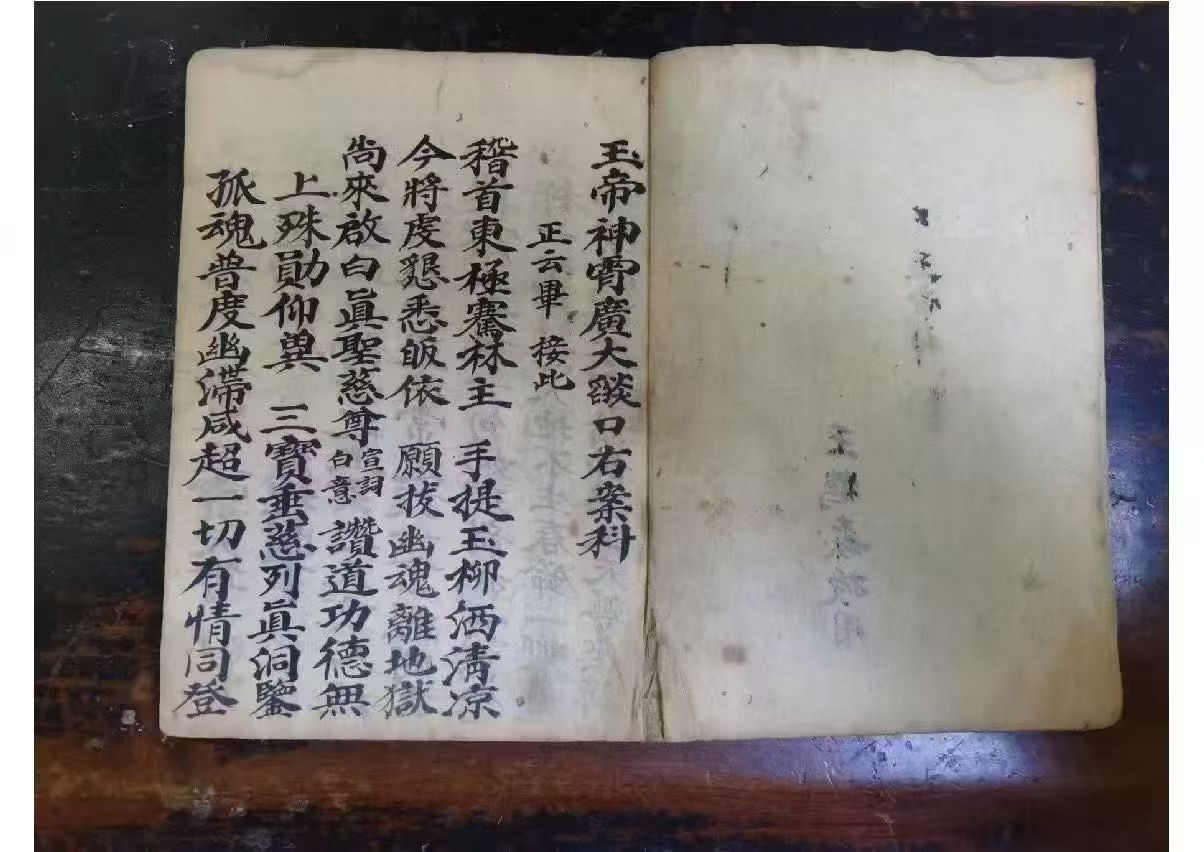 玉帝神霄廣大燄口右案科
正云畢 接此
稽首東極騫林主 手提玉柳洒清凉
今將虔懇悉皈依 願拔幽魂離地獄
尚來啟白眞聖慈尊 宣詞 白意 讚道功德無
上殊勛仰兾 三寶垂慈列眞洞鑒
孤魂普度幽滯咸超一切有情同登